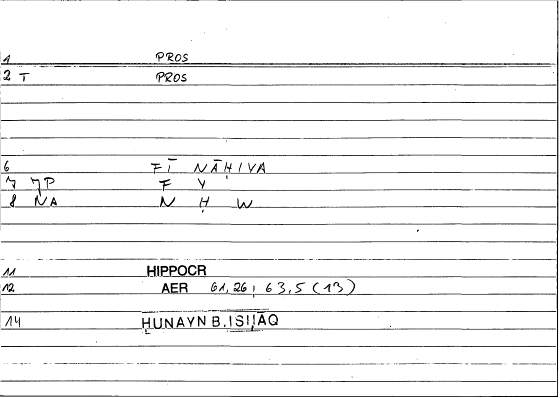 1 PROS
2 T PROS
6 FĪ NĀḤIYA
7 7P F Y
8 NA N Ḥ W
11 HIPPOCR
12 AER 61,26; 63,5 (13)
14 ḤUNAYN B. ISḤĀQ